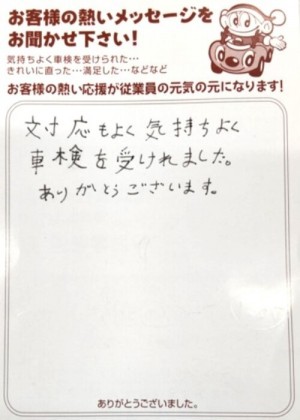 お客様の熱いメッセージを
お聞かせ下さい！
気持ちよく車検を受けられた…
きれいに直った…満足した…などなど
お客様の熱い応援が従業員の元気の元になります！
対応もよく気持ちよく
車検を受けれました。
ありがとうございます。
ありがとうございました。